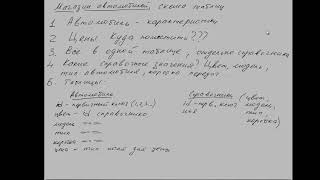 Магазин автомобилей, сколько таблиц
1 Автомобиль - характеристики
2 Цены куда поместить???
3 Все в одной таблице, отдельно справочники
4 Какие справочные значения? Цвет, модель,
тип автомобиля, коробка передач
5. Таблицы:
Автомобиль
id - первичный ключ (1,2,3..)
цвет - id справочника
модель —"—
тип —"—
коробка —"—
цена - тип поля для цены
Справочники (цвет,
модель,
тип,
коробка)
id - перв. ключ
имя